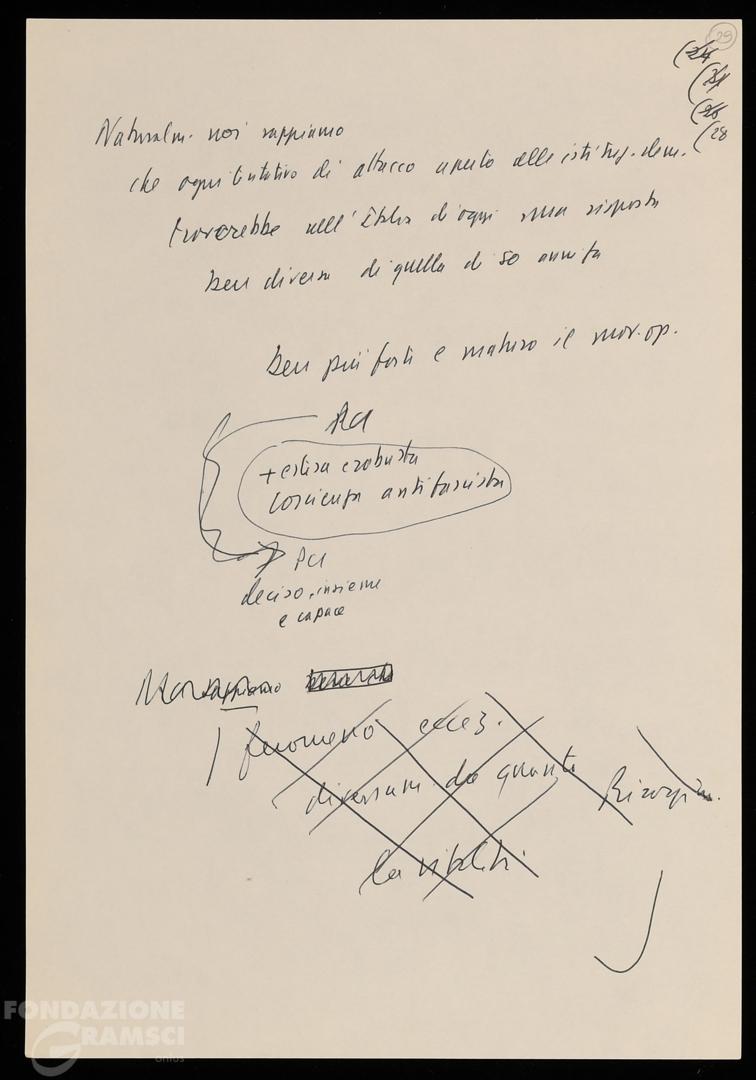 29
(24
(21
(26
(28
Naturalm. noi sappiamo
che ogni tentativo di attacco aperto alle istituz. dem.
troverebbe nell'Italia di oggi una risposta
ben diversa di quella di 50 anni fa
ben più forte e maturo il mov. op.
PCI
+ estesa e robusta
coscienza antifascista
PCI
deciso, insieme
e capace
Ma sappiamo
fenomeno
diversam. da quanti
la
FONDAZIONE
GRAMSCI
onlus